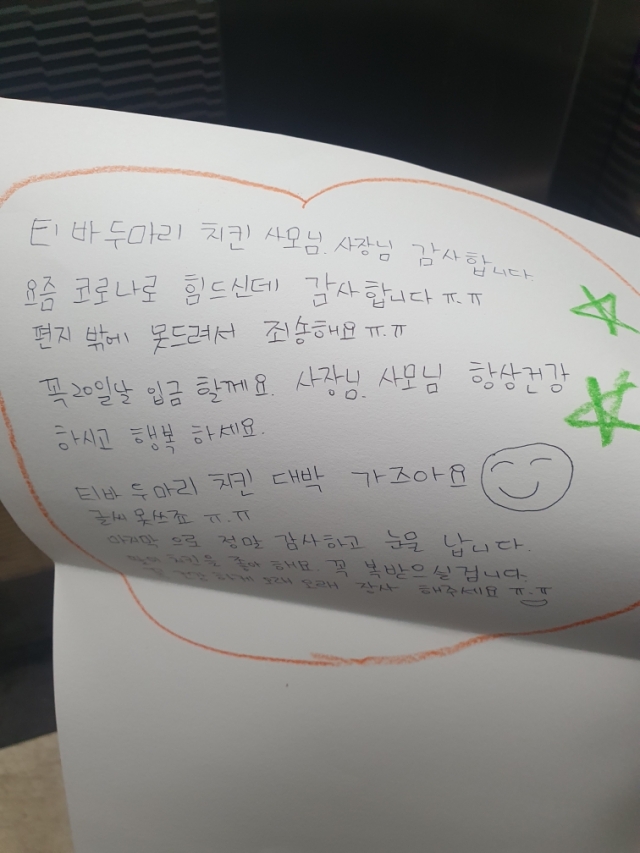 티바 두마리 치킨 사모님. 사장님 감사합니다.
요즘 코로나로 힘드신데 감사합니다 ㅠ.ㅠ
편지 밖에 못드려서 죄송해요 ㅠ.ㅠ
꼭 20일날 입금 할께요. 사장님. 사모님 항상건강
하시고 행복 하세요.
티바 두마리 치킨 대박 가즈아요
글씨 못쓰죠 ㅠ.ㅠ
마지막 으로 정말 감사하고 눈물 납니다.
치킨을 좋아 해요. 꼭 복받으실 겁니다.
건강 하게 오래 오래 장사 해주세요 ㅠ.ㅠ